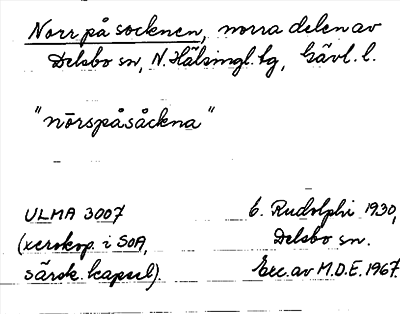 Norr på socknen, norra delen av
Delsbo sn, N. Hälsingl. tg, Gävl. l.
"nörspåsåckna"
ULMA 3007
(xerokop. i SOA,
särsk. kapsel).
6. Rudolphi 1930,
Delsbo sn.
Exc. av M.D.E. 1967.